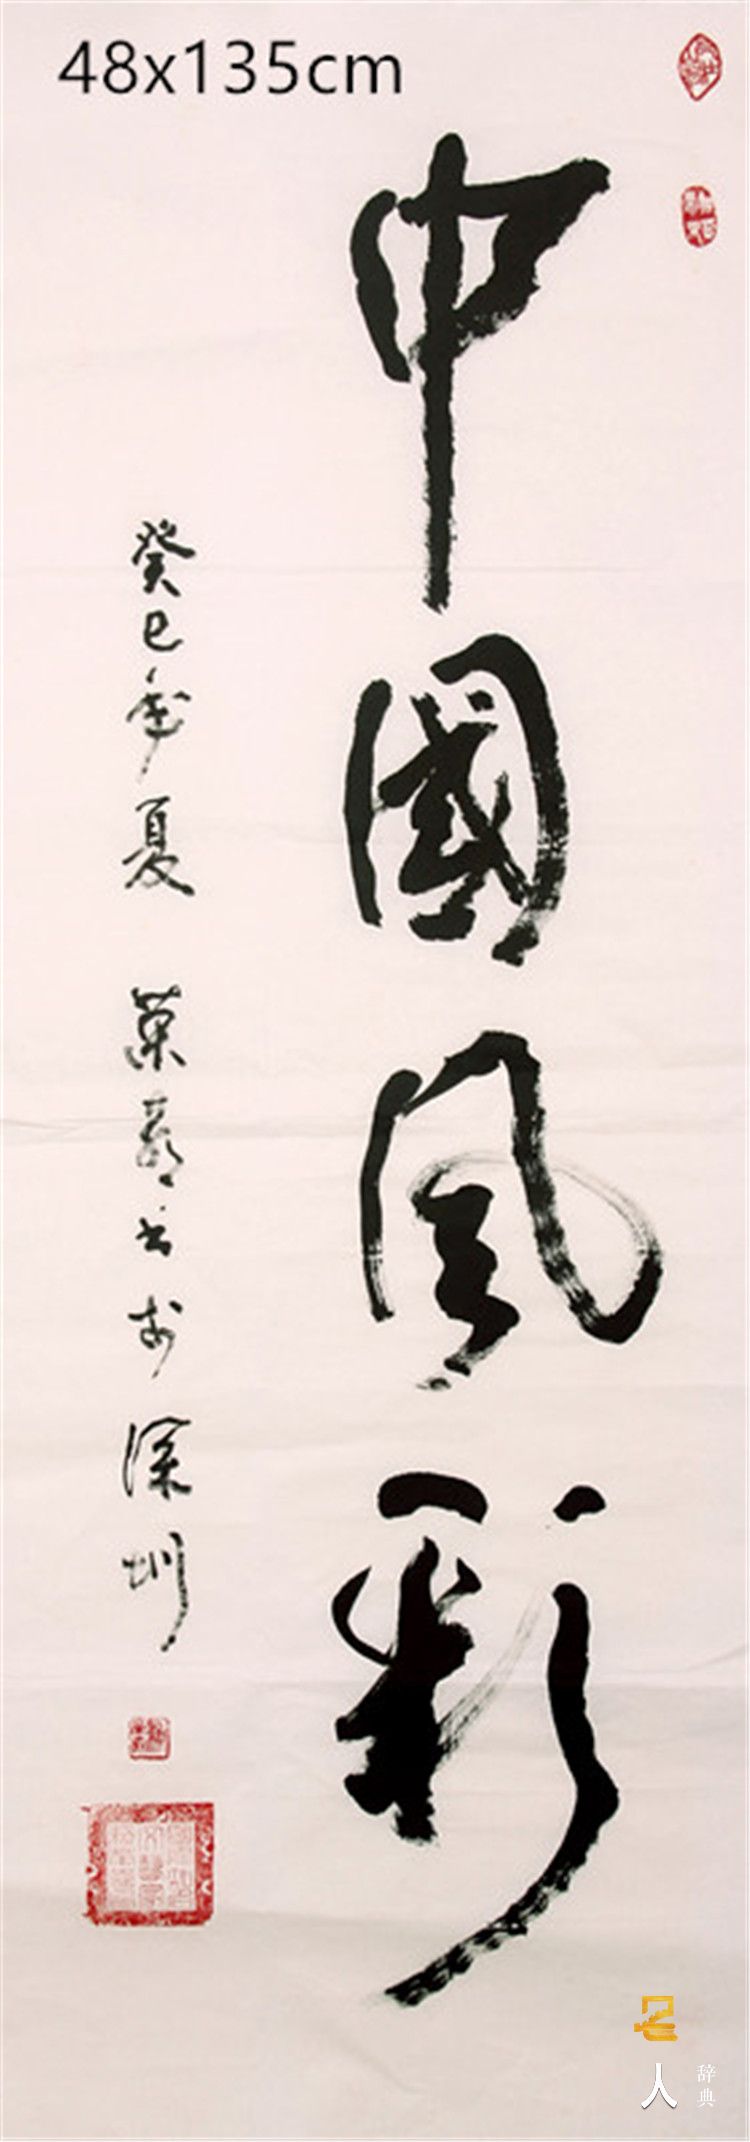 48x135cm
中國风彩
癸巳年夏 书於深圳
名人
辞典